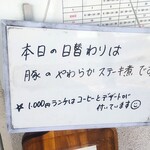 本日の日替わりは
豚のやわらかステーキ煮です
★ 1,000円ランチはコーヒーとデザートが
付いています☺